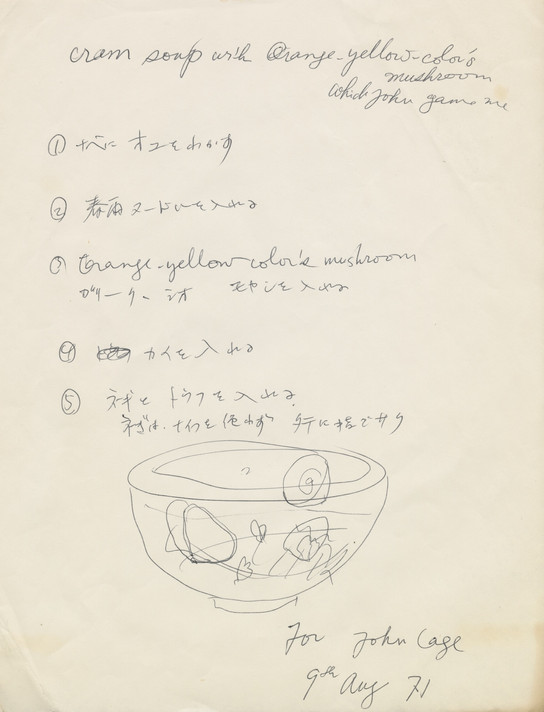 cram soup with Orange-yellow-color's
mushroom
which John game me
① ナベに オユをわかす
② 春雨ヌードルを入れる
③ Orange-yellow-color's mushroom
ガリーク、シオ モヤシを入れる
④ カイを入れる
⑤ ネギと トウフを入れる
ネギは、ナイフを使わず タテに指でサク
For John Cage
9th Aug 71